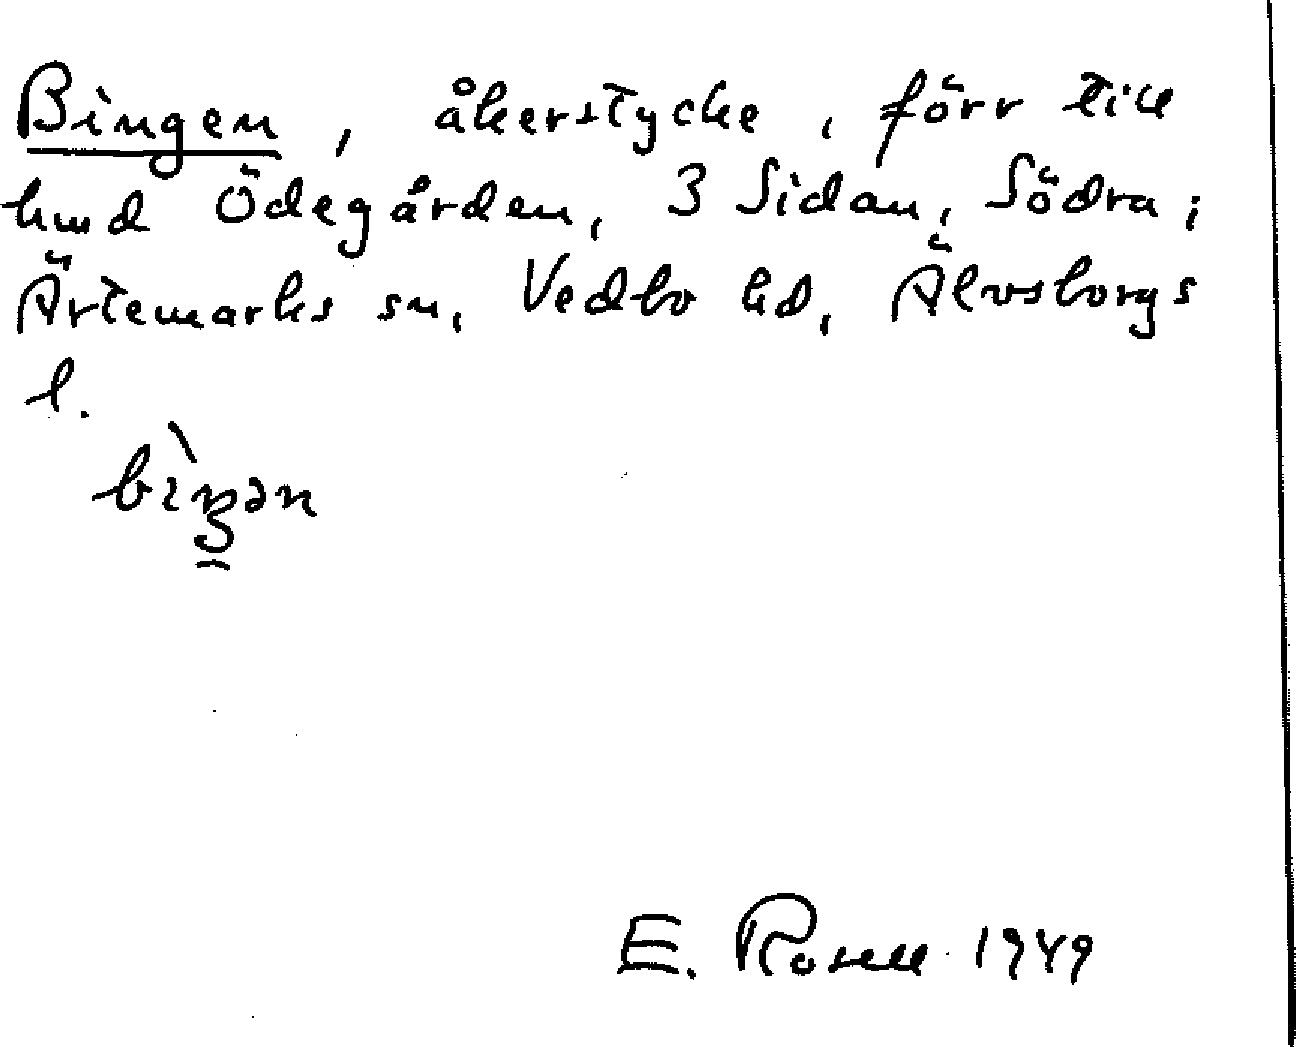 Bingen, åkerstycke, förr till
hmd Ödegården, 3 Sidan, Södra;
Ärtemarks sn, Vedbo hd, Älvsborgs
l.
E. Rosell 1949